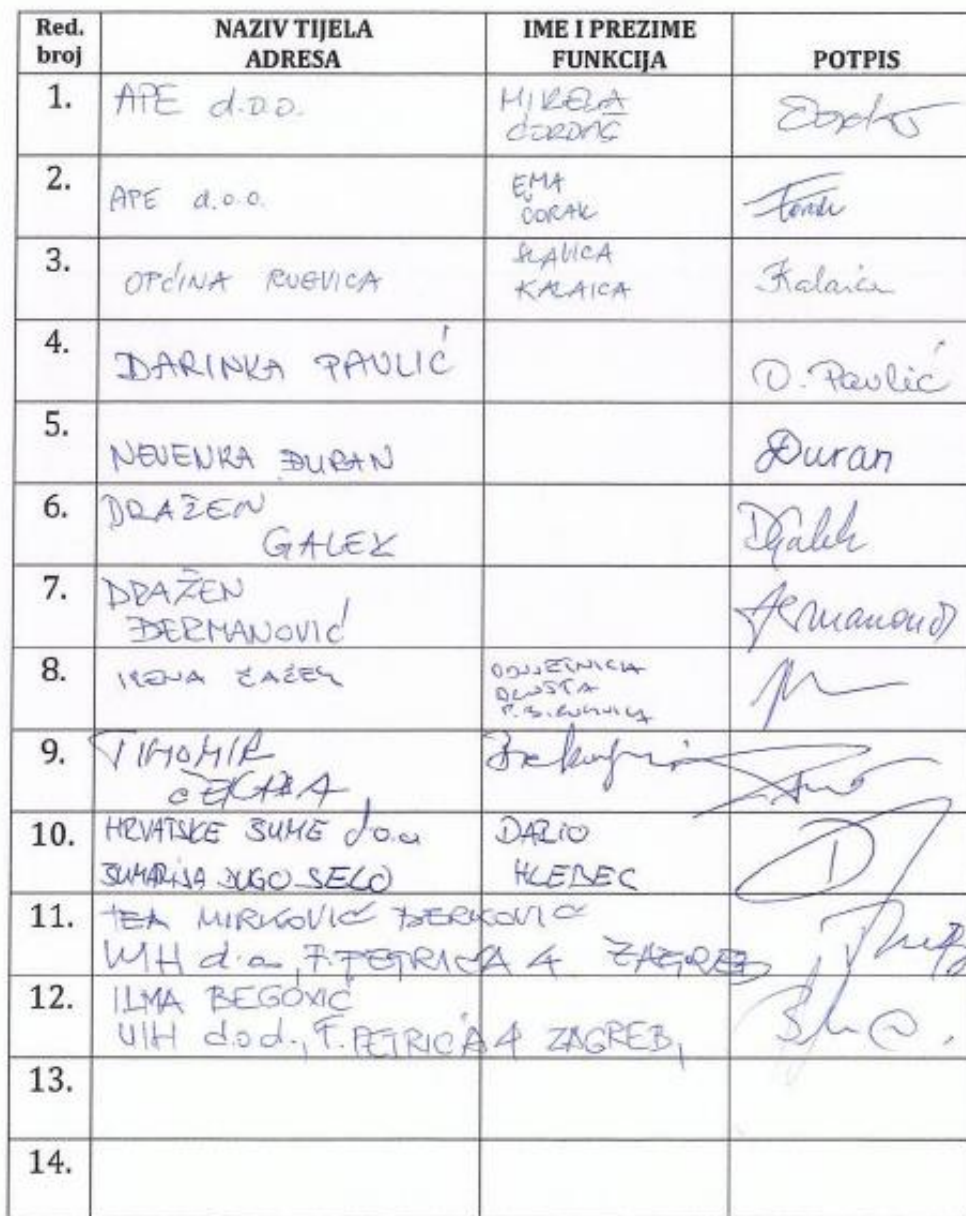 Red. broj NAZIV TIJELA ADRESA IME I PREZIME FUNKCIJA POTPIS
1. APE d.o.o. MIRELA ĆORDAŠ
2. APE d.o.o. EMA ČORAK
3. OPĆINA RUGVICA SLAVICA KALAICA Kalaica
4. DARINKA PAVLIĆ D. Pavlić
5. NEVENKA ĐURAN Đuran
6. DRAŽEN
GALEK DGalek
7. DRAŽEN
ĐERMANOVIĆ
8.
9. TIHOMIR
10. HRVATSKE ŠUME d.o.o. DARIO
ŠUMARIJA DUGO SELO HLEBEC
11. TEA MIRKOVIĆ BERKOVIĆ
VIH d.o.o., F. PETRIĆA 4 ZAGREB
12. ILMA BEGOVIĆ
VIH d.o.o., F. PETRIĆA 4 ZAGREB,
13.
14.